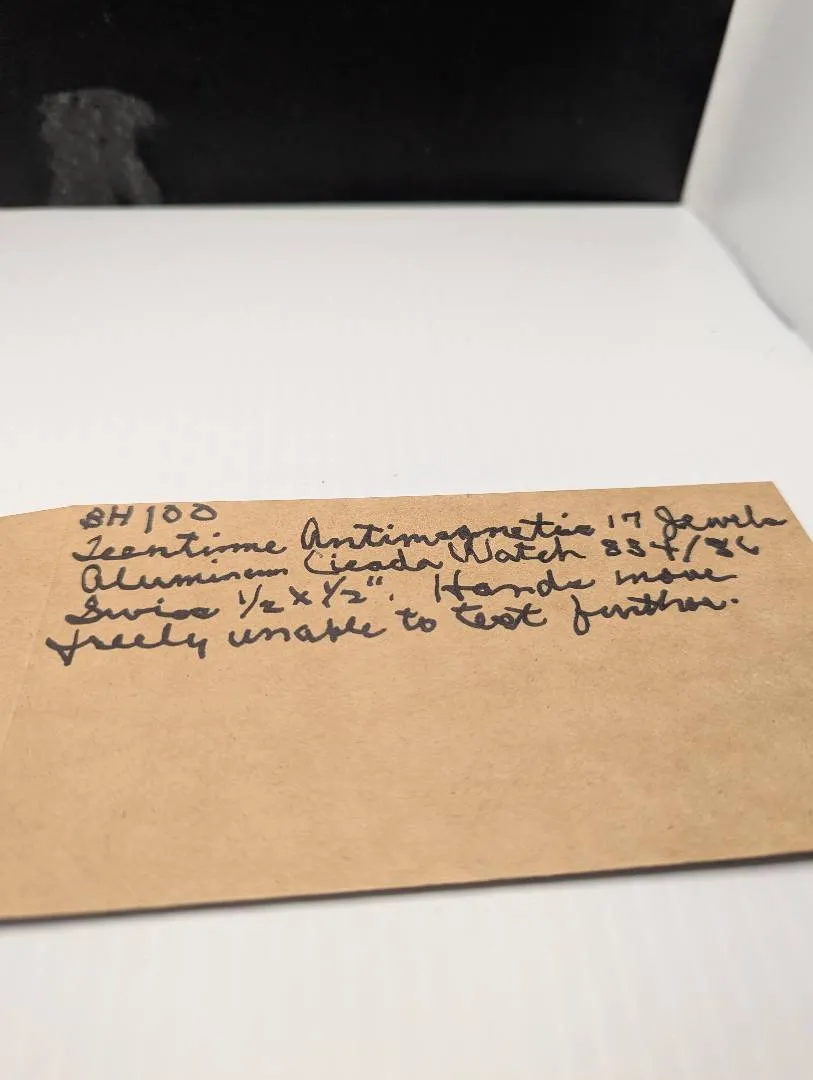 BH 100
Teentime Antimagnetic 17 Jewels
Aluminum Cicada Watch 834/86
Swiss 1/2 x 1/2". Hands move
freely unable to test further.